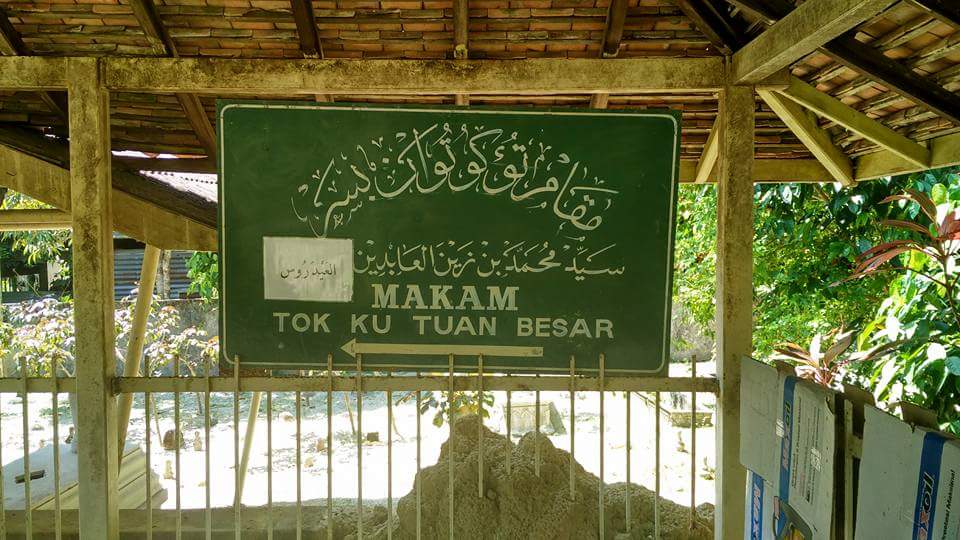 مقام توء كو توان بسر
سيد محمد بن زين العابدين العيدروس
MAKAM
TOK KU TUAN BESAR